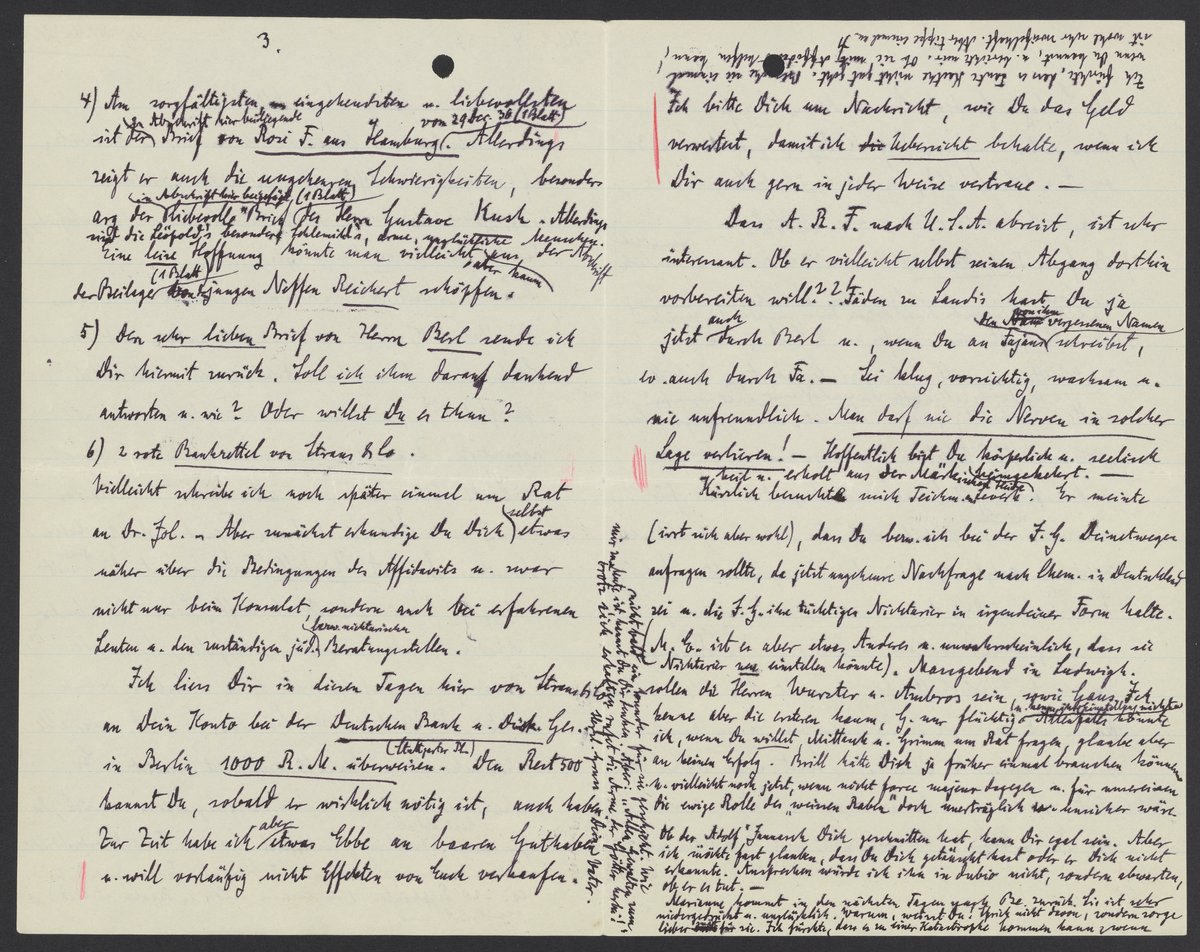 3.
4) Am sorgfältigsten, eingehendsten u. liebevollsten
ist der (in Abschrift hier beiliegende) Brief von Rosi F. aus Hamburg (vom 29 Dec. 36 (1 Blatt)). Allerdings
zeigt er auch die ungeheuren Schwierigkeiten, besonders
arg der "liebevolle" Brief (in Abschrift hier beigefügt, (1 Blatt)) des Herrn Gustave Kush. Allerdings
sind die Leopold's besondere Schlemihl's, arme, unglückliche Menschen.
Eine leise Hoffnung könnte man vielleicht aus der Abschrift
(1 Blatt) aber kaum
der Beilage des jungen Neffen Reichert schöpfen.
5) Den sehr lieben Brief von Herrn Berl sende ich
Dir hiermit zurück. Soll ich ihm darauf dankend
antworten u. wie? Oder willst Du es thun?
6) 2 rote Bankzettel von Straus & Co.
Vielleicht schreibe ich noch später einmal um Rat
an Dr. Zol. – Aber zunächst erkundige Du Dich selbst etwas
näher über die Bedingungen des Affidavits u. zwar
nicht nur beim Konsulat, sondern auch bei erfahrenen
Leuten u. den zuständigen jüd. (bezw. nichtarischen) Beratungsstellen.
Ich liess Dir in diesen Tagen hier von Straus & Co
an Dein Konto bei der Deutschen Bank u. Disk. Ges.
(Stuttgarter Pl.)
in Berlin 1000 R. M. überweisen. Den Rest 500
kannst Du, sobald er wirklich nötig ist, auch haben.
Zur Zeit habe ich aber etwas Ebbe an baaren Guthaben
u. will vorläufig nicht Effekten von Euch verkaufen.
Ich bitte Dich um Nachricht, wie Du das Geld
verwertest, damit ich die Uebersicht behalte, wenn ich
Dir auch gern in jeder Weise vertraue. –
Dass A. R. F. nach U.S.A. abreist, ist sehr
interessant. Ob er vielleicht selbst seinen Abgang dorthin
vorbereiten will??? Fäden zu Landis hast Du ja
jetzt auch durch Berl u., wenn Du an Fajans (den von ihm vergessenen Namen) schreibst,
ev. auch durch Fa. – Sei klug, vorsichtig, wachsam u.
nie unfreundlich. Man darf nie die Nerven in solcher
Lage verlieren! – Hoffentlich bist Du körperlich u. seelisch
heil u. erholt aus der Märkischen Heide heimgekehrt. –
Kürzlich besuchte mich Teichm. - Leverk. Er meinte
(irrt sich aber wohl), dass Du bezw. ich bei der I.G. Deinetwegen
anfragen sollte, da jetzt ungeheure Nachfrage nach Chem. in Deutschland
sei u. die I.G. ihre tüchtigen Nichtarier in irgendeiner Form halte.
M. E. ist es aber etwas Anderes u. unwahrscheinlich, dass sie
Nichtarier neu einstellen könnte). Massgebend in Ludwigh.
sollen die Herren Wurster u. Ambros sein, sowie Gaus. Ich
kenne aber die ersteren kaum, G. nur flüchtig. Allenfalls könnte
ich, wenn Du willst, Mittasch u. Grimm um Rat fragen, glaube aber
an keinen Erfolg. Brill hätte Dich ja früher einmal brauchen können
u. vielleicht noch jetzt, wenn nicht force majeure dagegen u. für unsereinen
die ewige Rolle des "weissen Raben" doch unerträglich u. unsicher wäre.
Ob der "Adolf" Jannasch Dich geschnitten hat, kann Dir egal sein. Aber
ich möchte fast glauben, dass Du Dich getäuscht hast oder er Dich nicht
erkannte. Ansprechen würde ich ihn in dubio nicht, sondern abwarten,
ob er es tut. –
Marianne kommt in den nächsten Tagen nach Be. zurück. Sie ist sehr
niedergedrückt u. unglücklich. Warum, weisst Du! Sprich nicht davon, sondern sorge
lieber für sie. Ich fürchte, dass es zu einer Katastrophe kommen kann, wenn
nicht bald ein Wunder für sie geschieht
"Allen Gewalten zum
Trotz sich erhalten, rufet die Arme der Götter herbei!"
Vater.